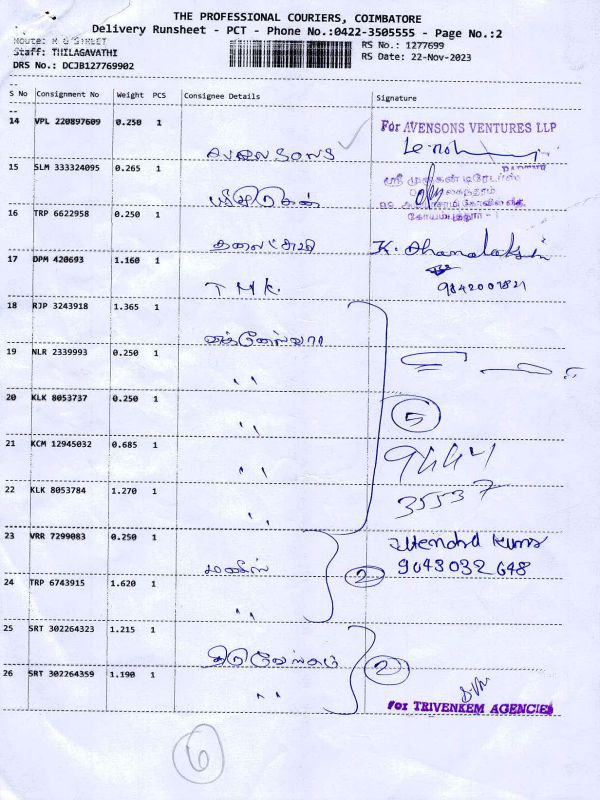 THE PROFESSIONAL COURIERS, COIMBATORE
Delivery Runsheet - PCT - Phone No.:0422-3505555 - Page No.:2
Staff: THILAGAVATHI
DRS No.: DCJB127769902
RS No.: 1277699
RS Date: 22-Nov-2023
S No Consignment No Weight PCS Consignee Details Signature
14 VPL 220897609 0.250 1
For AVENSONS VENTURES LLP
15 SLM 333324095 0.265 1
16 TRP 6622958 0.250 1
K. Dhanalakshmi
17 DPM 420693 1.160 1
9842001821
T M K.
18 RJP 3243918 1.365 1
19 NLR 2339993 0.250 1
" "
20 KLK 8053737 0.250 1
5
" "
21 KCM 12945032 0.685 1
9444
" "
22 KLK 8053784 1.270 1
35537
" "
23 VRR 7299083 0.250 1
Jitendra Kumar
9043032648
2
24 TRP 6743915 1.620 1
" "
25 SRT 302264323 1.215 1
2
26 SRT 302264359 1.190 1
" "
For TRIVENKEM AGENCIES
6